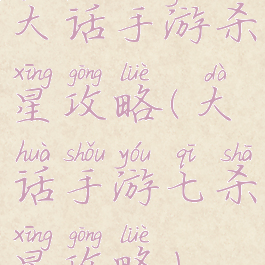 大话手游杀
xīng gōng lüè dà
星攻略(大
huà shǒu yóu qī shā
话手游七杀
xīng gōng lüè
星攻略)